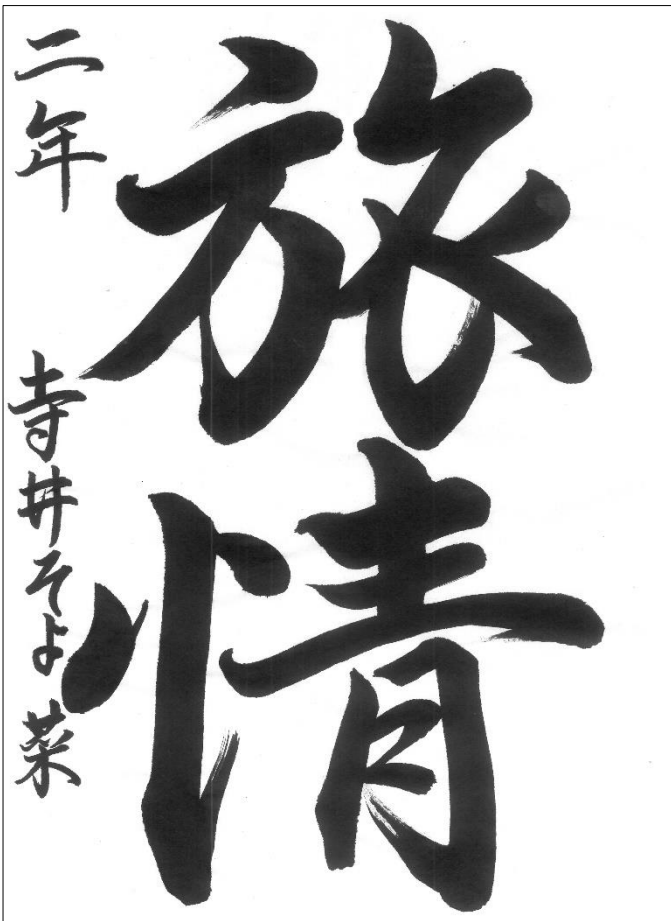 旅情
二年 寺井そよ菜